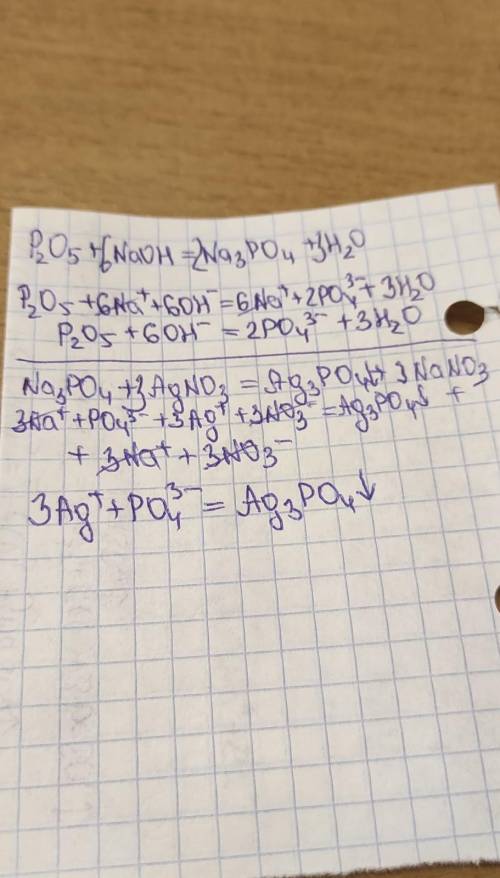 P₂O₅ + 6NaOH = 2Na₃PO₄ + 3H₂O
P₂O₅ + 6Na⁺ + 6OH⁻ = 6Na⁺ + 2PO₄³⁻ + 3H₂O
P₂O₅ + 6OH⁻ = 2PO₄³⁻ + 3H₂O
Na₃PO₄ + 3AgNO₃ = Ag₃PO₄↓ + 3NaNO₃
3Na⁺ + PO₄³⁻ + 3Ag⁺ + 3NO₃⁻ = Ag₃PO₄↓ +
+ 3Na⁺ + 3NO₃⁻
3Ag⁺ + PO₄³⁻ = Ag₃PO₄↓